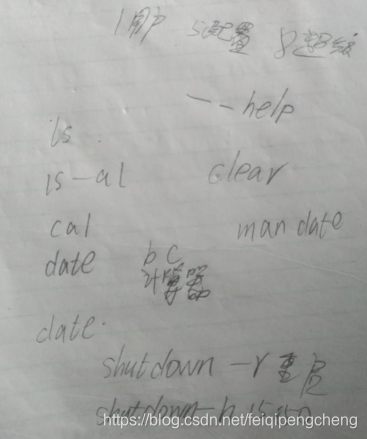 1用户 5配置 8超级
--help
ls.
ls-al clear
cal man date
date bc
计算器
date.
shutdown -r 重启
shutdown-h
https://blog.csdn.net/feiqipengcheng